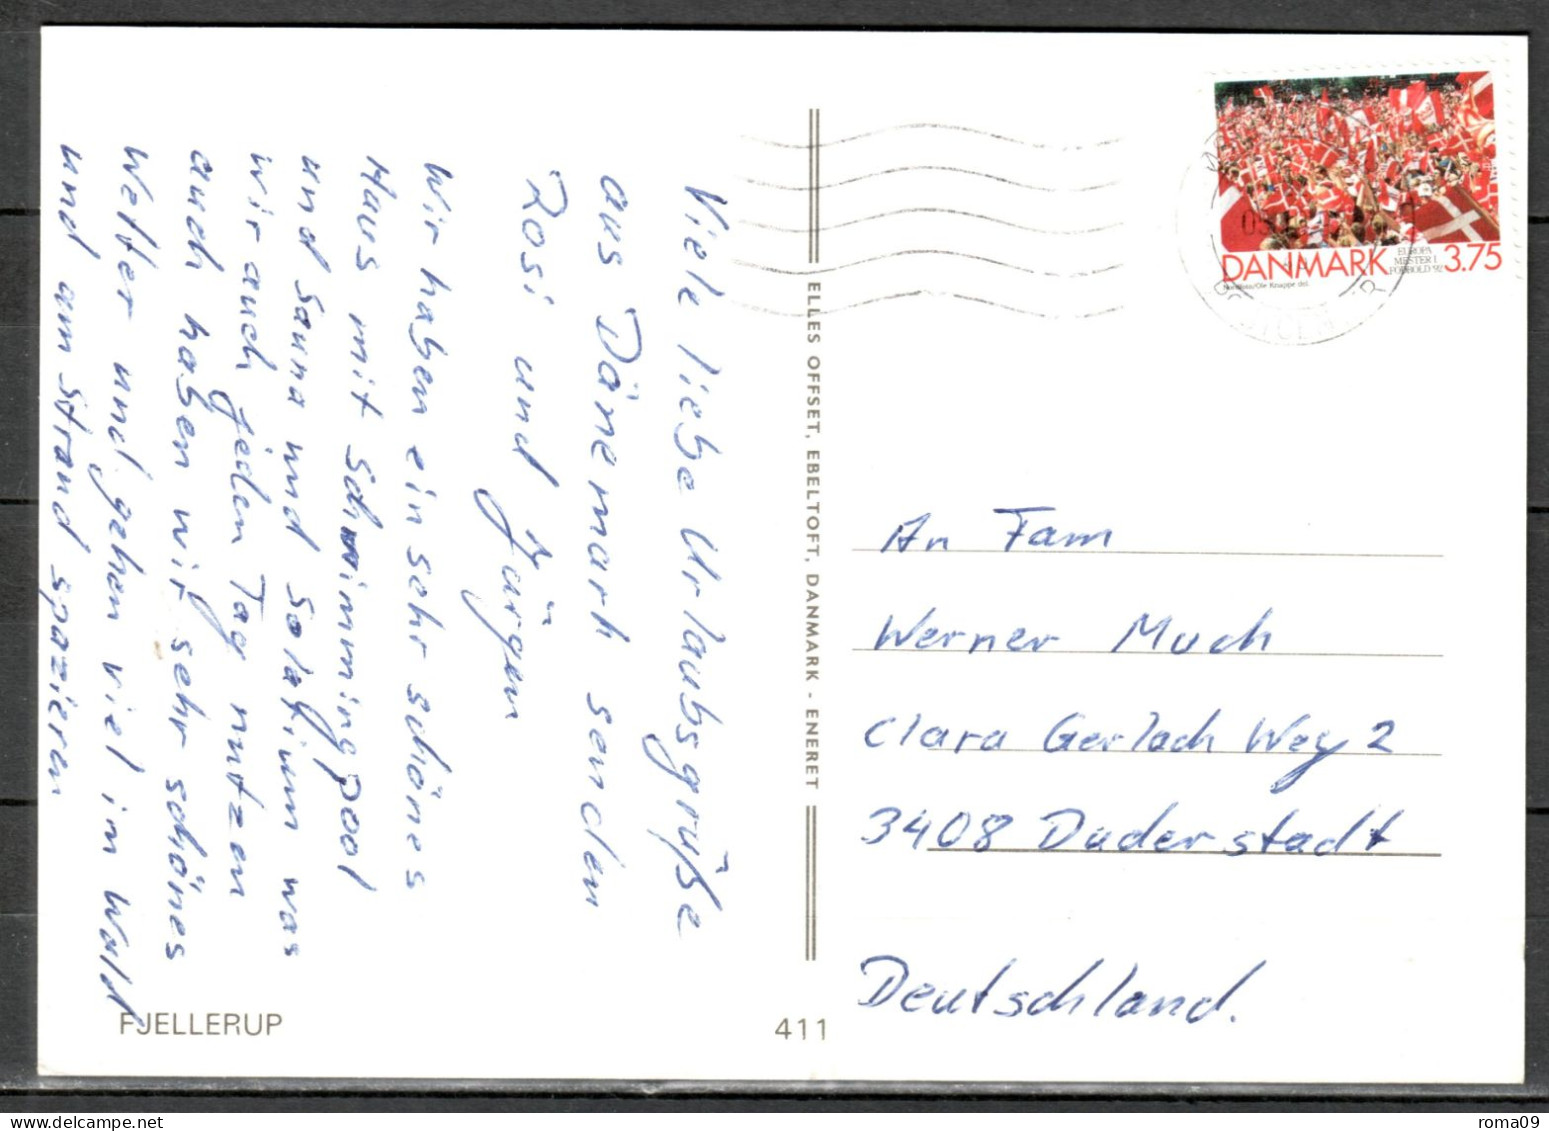 Viele liebe Urlaubsgrüße
aus Dänemark senden
Rosi und Jürgen
Wir haben ein sehr schönes
Haus mit Schwimmingpool
und Sauna und Solatium was
wir auch jeden Tag nutzen
auch haben wir sehr schönes
Wetter und gehen viel in Wald
und am Strand spazieren
FJELLERUP
411
ELLES OFFSET, EBELTOFT, DANMARK - ENERET
DANMARK 3.75
EUROPA
MESTER I
FODBOLD '92
An Fam
Werner Much
Clara Gerlach Weg 2
3408 Duderstadt
Deutschland.
roma09